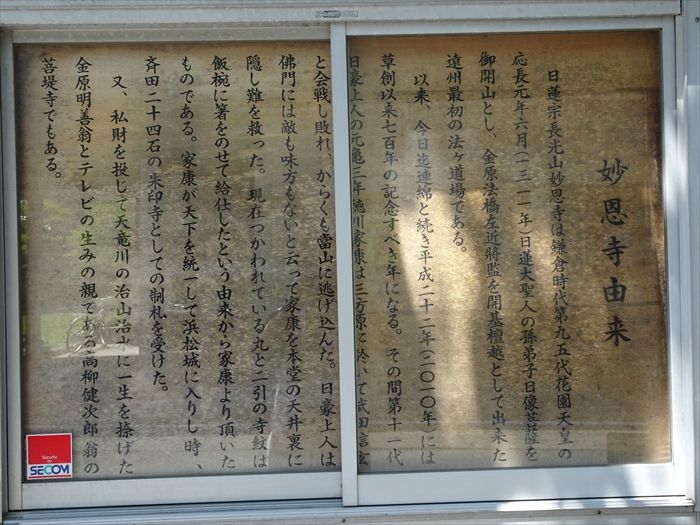 妙恩寺由来
日蓮宗長光山妙恩寺は鎌倉時代第九五代花園天皇の
応長元年六月(一三一一年)日蓮大聖人の孫弟子日像菩薩を
御開山とし、金原法橋左近將監を開基檀越として出来た
遠州最初の法ヶ道場である。
以来、今日迄連綿と続き平成二十二年(二〇一〇年)には
草創以来七百年の記念すべき年になる。その間第十一代
日豪上人の元亀三年徳川家康は三方原に於いて武田信玄
と会戦し敗れ、からくも當山に逃げ込んだ。日豪上人は
佛門には敵も味方もないと云って家康を本堂の天井裏に
隠し難を救った。現在つかわれている丸と二引の寺紋は
飯椀に箸をのせて給仕したという由来から家康より頂いた
ものである。家康が天下を統一して浜松城に入りし時、
斉田二十四石の朱印寺としての制札を受けた。
又、私財を投じて天竜川の治山治水に一生を捧げた
金原明善翁とテレビの生みの親である高柳健次郎翁の
菩堤寺でもある。
Security by
SECOM